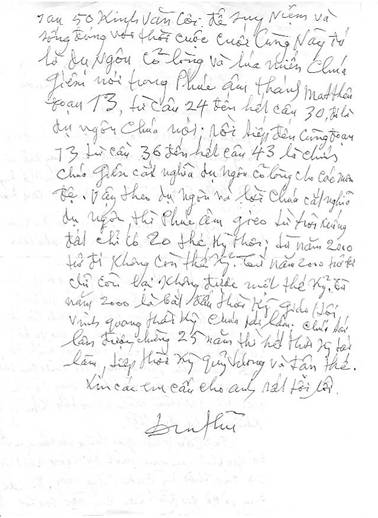 ran 50 Kinh Văn Côi. để suy Niệm và
sống đúng với thời cuộc cuối Cùng Này đó
là dụ Ngôn cỏ lùng và lúa miến Chúa
Giêsu nói trong Phúc âm, thánh Matthêu
đoạn 13, từ câu 24 đến hết câu 30, đó là
dụ ngôn Chúa nói. rồi tiếp đến cũng đoạn
13 từ câu 36 đến hết câu 43 là chính
Chúa Giêsu cắt nghĩa dụ ngôn cỏ lùng cho các môn
đệ. Vậy theo dụ ngôn và lời Chúa cắt nghĩa
dụ ngôn thì Phúc âm gieo từ trời xuống
đất chỉ có 20 thế kỷ thôi; từ năm 2000
trở đi không còn thế kỷ. từ năm 2000 trở đi
chỉ còn lại không được một thế kỷ. từ
năm 2000 là bắt đầu thời kỳ Giáo Hội
vinh quang thời kỳ Chúa lại lần. Chúa lại
lần được chừng 25 năm thì hết thời kỳ lại
lần, tiếp thời kỳ quỷ vương và tận thế.
Xin các em cầu cho anh rất tội lỗi.